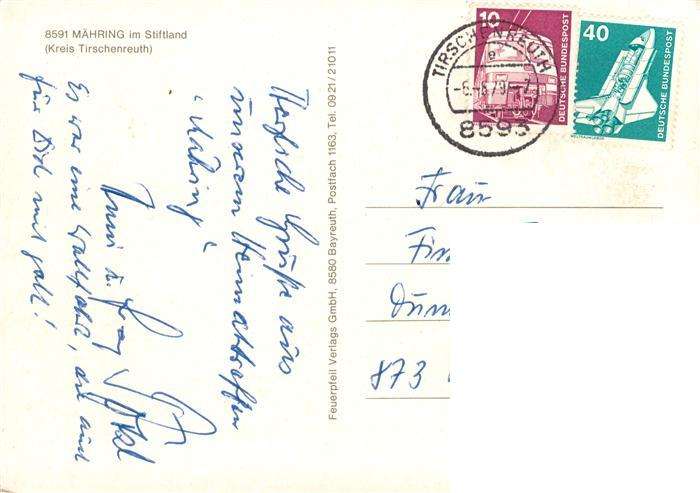 8591 MÄHRING im Stiftland
(Kreis Tirschenreuth)
Herzliche Grüße aus
unserem Heimattreffen
"Mähring"
Es war eine Wallfahrt, die auch
für Dich mit galt!
Feuerpfeil Verlags GmbH, 8580 Bayreuth, Postfach 1163, Tel. 09 21 / 2 10 11
10
DEUTSCHE BUNDESPOST
40
DEUTSCHE BUNDESPOST
TIRSCHENREUTH
8593
Frau
873